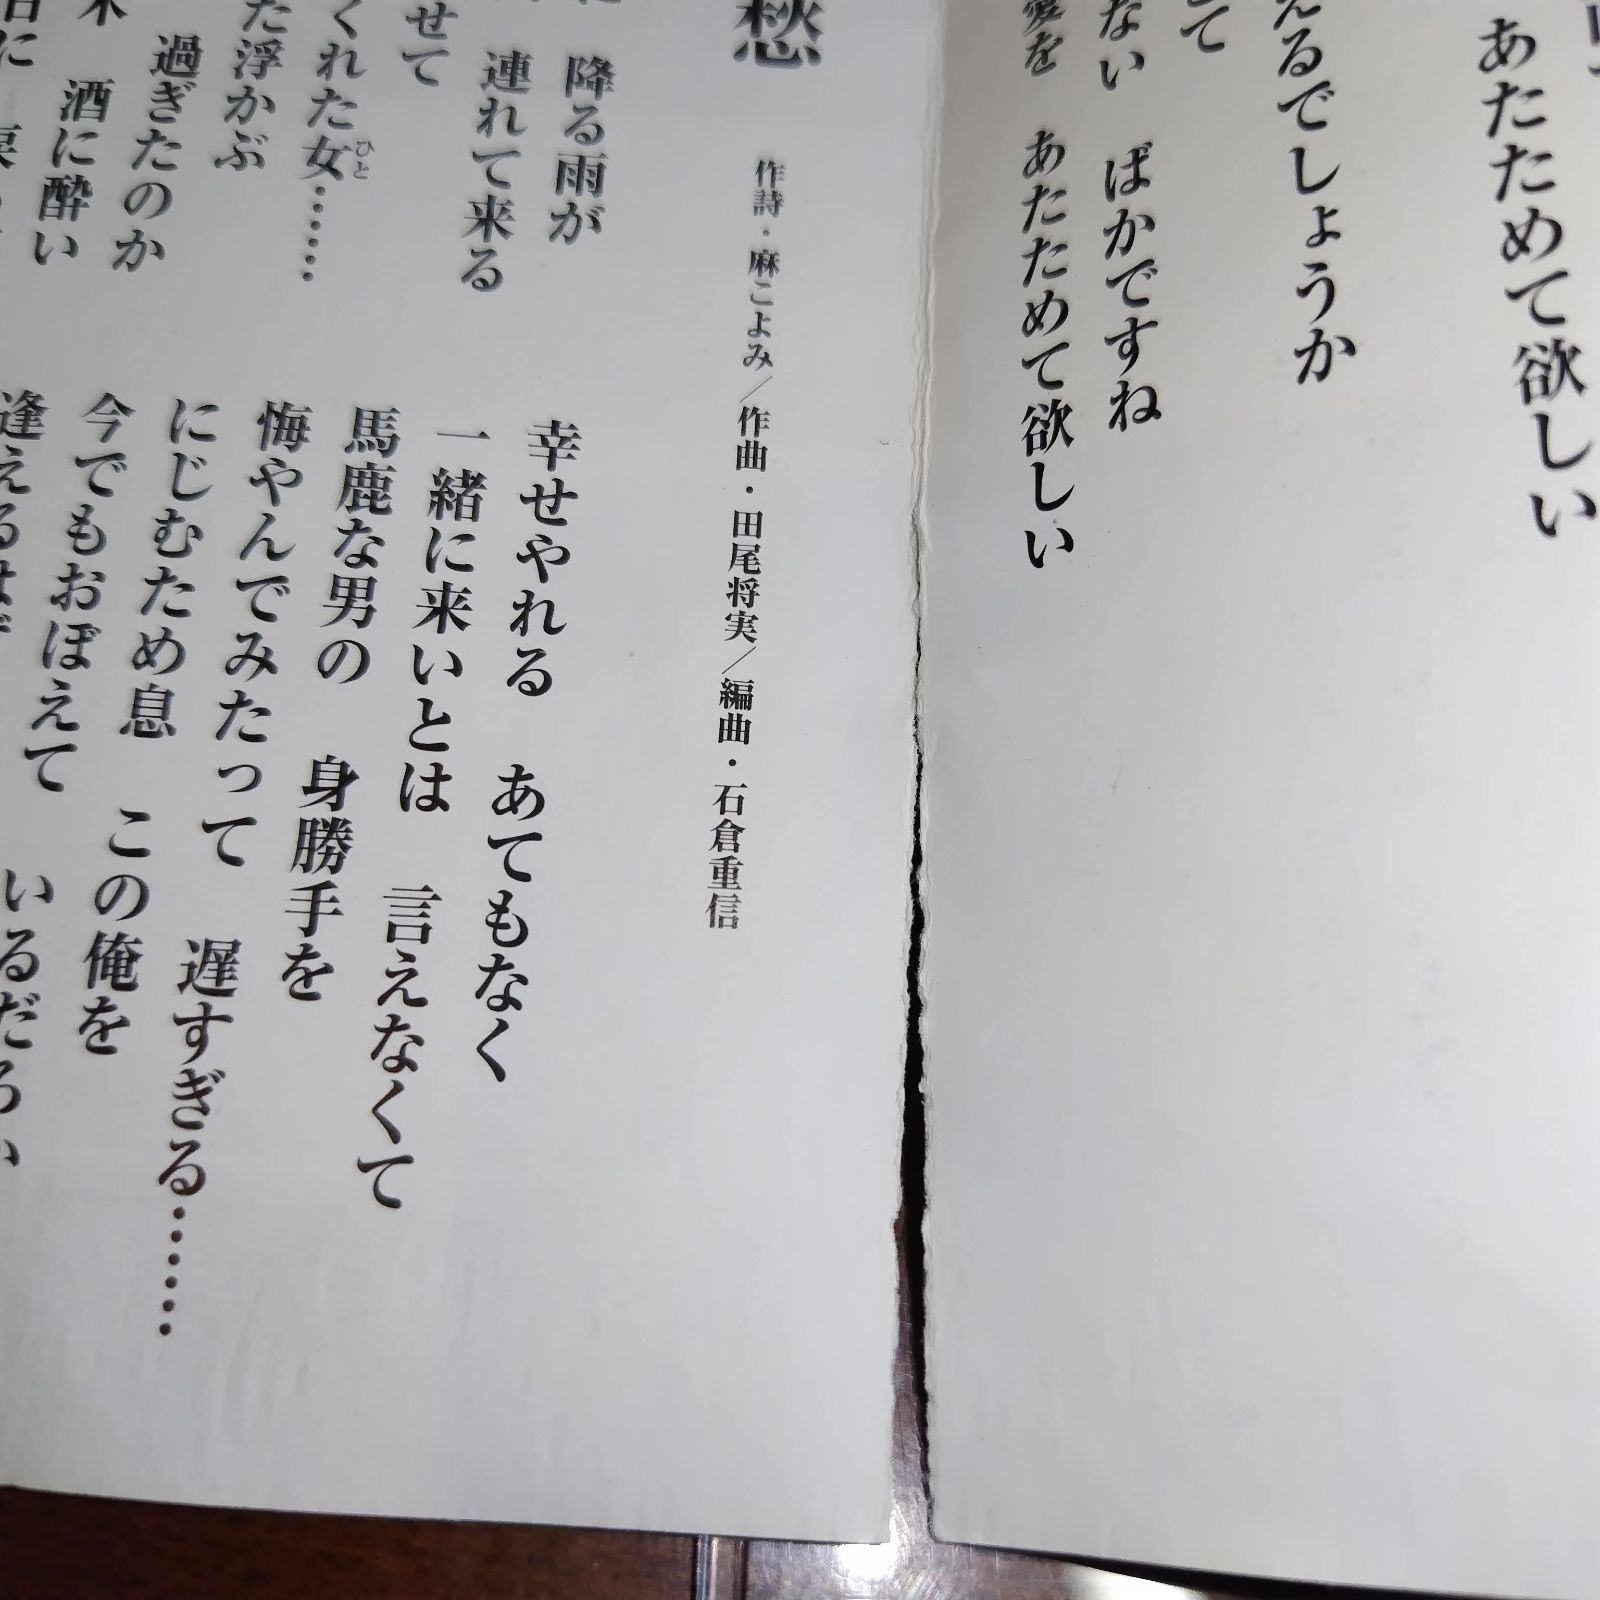 あたためて欲しい
えるでしょうか
て
ない ばかですね
愛を あたためて欲しい
愁
作詩・麻こよみ／作曲・田尾将実／編曲・石倉重信
降る雨が
連れて来る
せて
くれた女……
ひと
た浮かぶ
過ぎたのか
酒に酔い
幸せやれる あてもなく
一緒に来いとは 言えなくて
馬鹿な男の 身勝手を
悔やんでみたって 遅すぎる……
にじむため息 この俺を
今でもおぼえて いるだろか
逢えるはず